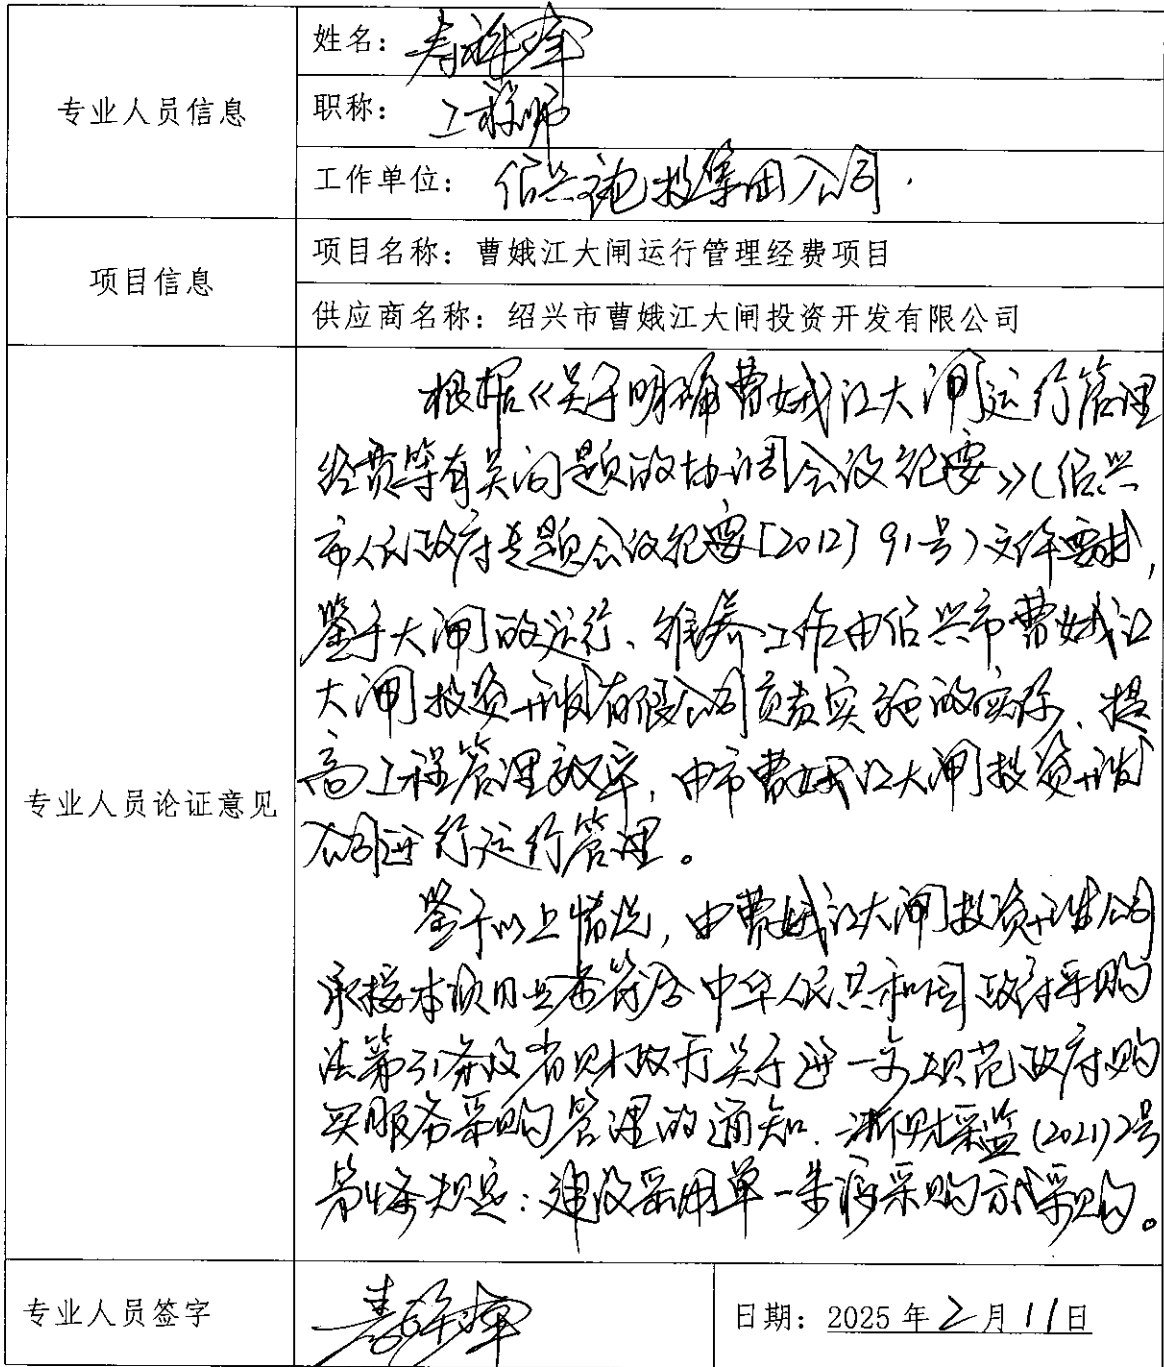 专业人员信息
姓名：寿祥
职称：工程师
工作单位：绍兴 投集团公司
项目信息
项目名称：曹娥江大闸运行管理经费项目
供应商名称：绍兴市曹娥江大闸投资开发有限公司
专业人员论证意见
根据《关于明确曹娥江大闸运行管理
经费等有关问题的协调会议纪要》(绍兴
市人民政府专题会议纪要[2012]91号)文件要求,
鉴于大闸的运行、维养工作由绍兴市曹娥江
大闸投资开发有限公司负责实施的实际、提
高工程管理效率,由市曹娥江大闸投资开发
公司进行运行管理。
鉴于以上情况,由曹娥江大闸投资开发公司
承接本项目业务符合中华人民共和国政府采购
法第31条及省财政厅关于进一步规范政府购
买服务采购管理的通知.浙财采监(2021)2号
第 条规定:建议采用单一来源采购方式采购。
专业人员签字
寿祥
日期：2025年2月11日